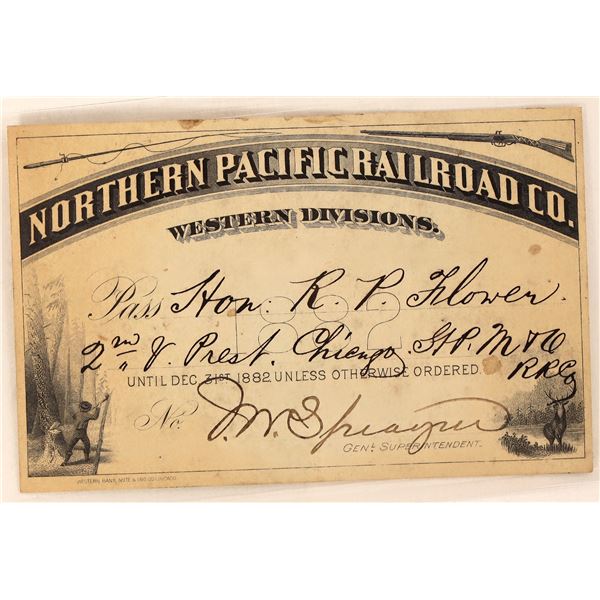 NORTHERN PACIFIC RAILROAD CO.
WESTERN DIVISIONS.
Pass Hon. R. P. Flower.
1882
2nd V. Prest. Chicago, St P. M & O
R R Co
UNTIL DEC. 31ST 1882. UNLESS OTHERWISE ORDERED.
No. J. W. Sprague
GENL SUPERINTENDENT.
WESTERN BANK NOTE & ENG. CO. CHICAGO.